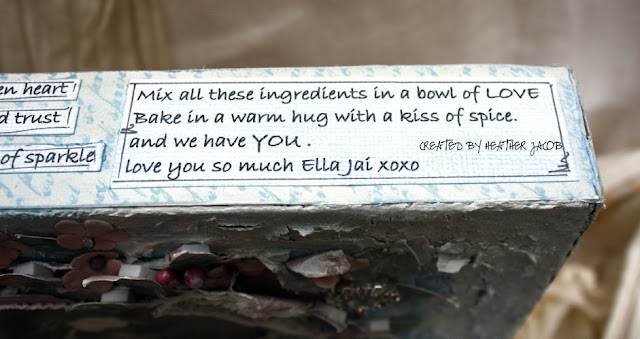 en heart
d trust
of sparkle
Mix all these ingredients in a bowl of LOVE
Bake in a warm hug with a kiss of spice.
and we have YOU.
love you so much Ella Jai xoxo
CREATED BY HEATHER JACOB